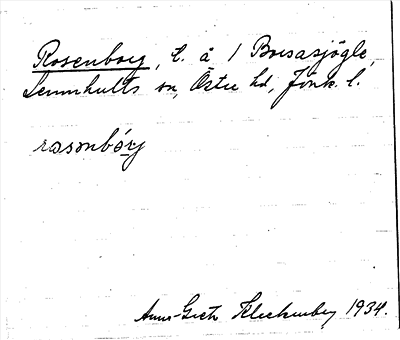 Rosenborg, l. å 1 Boesasjögle,
Lemnhults sn, Östra hd, Jönk. l.
rosənbórj
Anna-Greta Kleckenberg 1934.